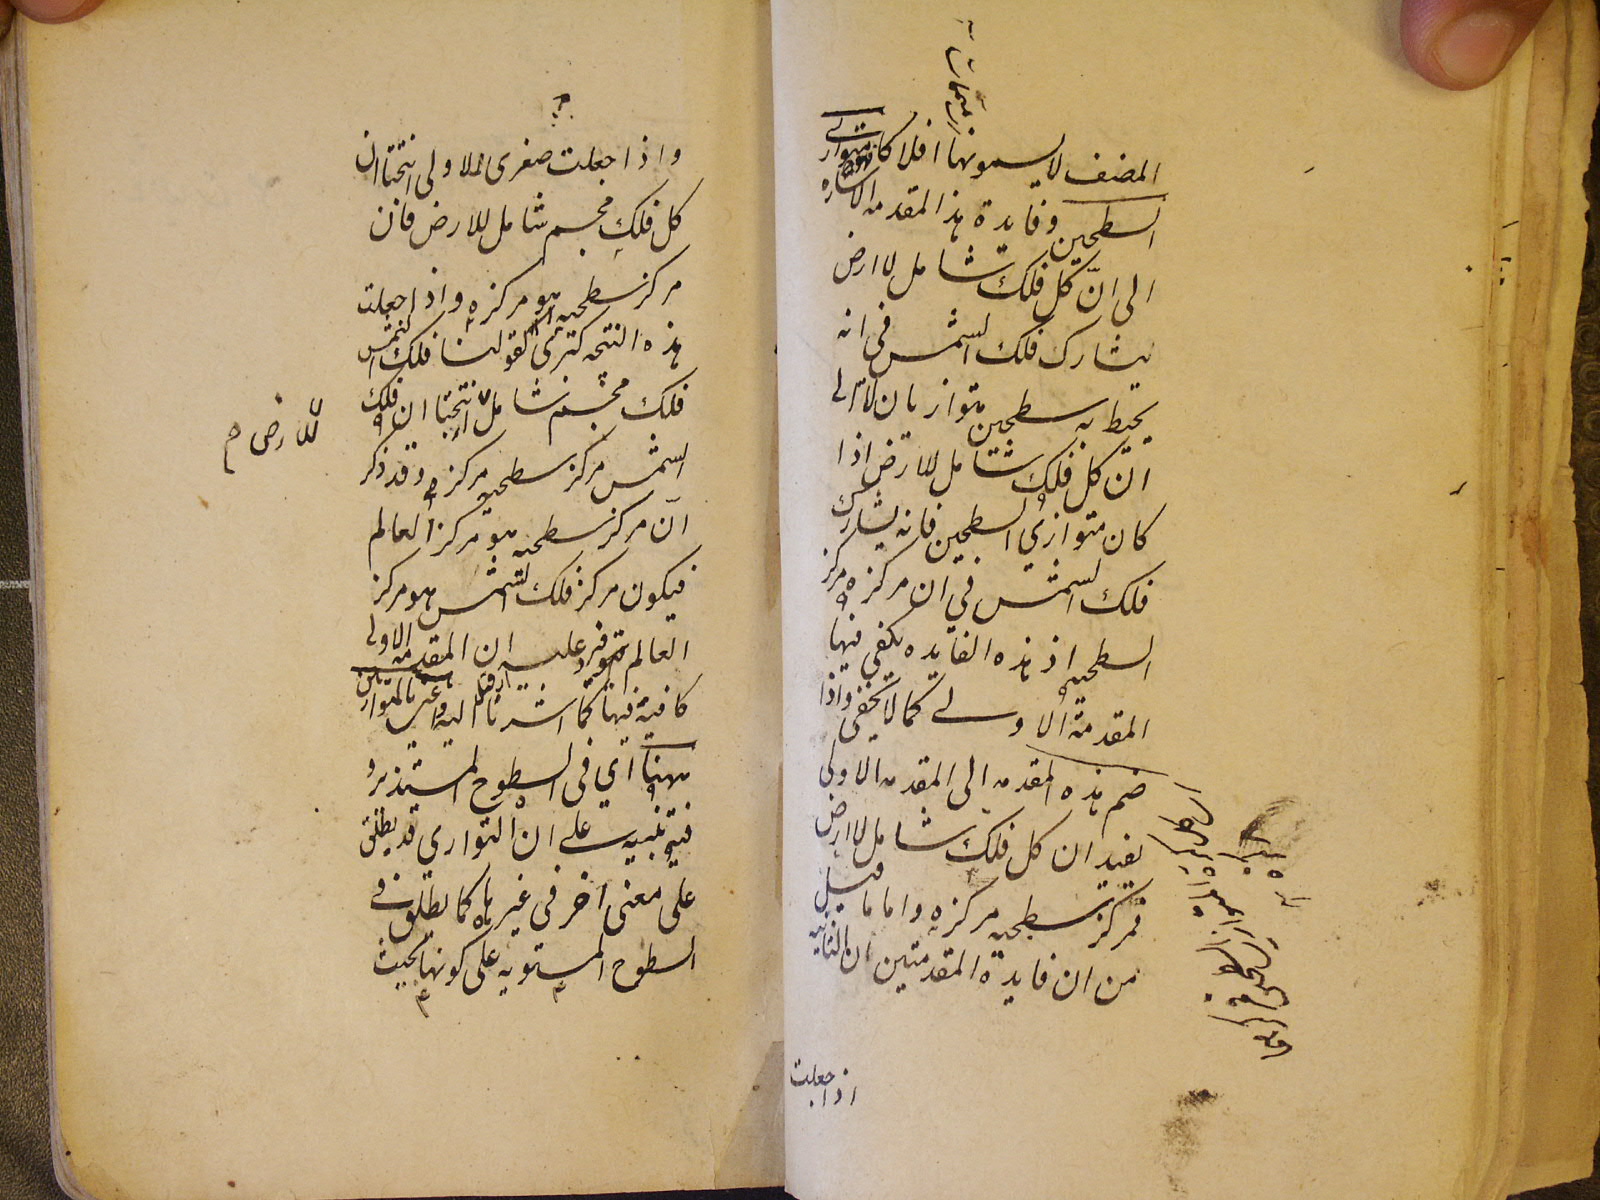 المصنف لا يسمونها افلاكا متوازي
السطحين وفايدة هذا المقدمه الاشاره
الى انّ كل فلك شامل لاارض
يشارك فلك الشمس فى انه
يحيط به سطحين متوازيان لا الى
انّ كل فلك شامل للارض اذا
كان متوازي السطحين فانه يشارك
فلك الشمس في ان مركزه مركز
السطحيه اذ هذه الفايده يكفي فيها
المقدمة الاولے كما لا يخفى واذا
ضم هذه المقدمه الى المقدمه الاولى
يفيد ان كل فلك شامل لاارض
فمركز سطحيه مركزه واما ما قيل
من ان فايدة المقدمتين ان الثانيه
اذا جعلت
واذا جعلت صغرى للاولى انتجتا ان
كل فلك مجسم شامل للارض فان
مركز سطحيه هو مركزه واذا جعلت
هذه النتجه كبرى لقولنا فلك الشمس
فلك مجسم شامل انتجتا ان فلك
للارض م
الشمس مركز سطحيه مركزه وقد ذكر
انّ مركز سطحيه هو مركز العالم
فيكون مركز فلك الشمس هو مركز
العالم فيرد عليه ان المقدمه الاولى
كافية فيها كما اشرنا اليه وعنى بالمتوازيين
ههنا اي فى السطوح المستديرة
فيه تنبيه على ان التوازي قد يطلق
على معنى اخر فى غيرها كما يطلق في
السطوح المستويه على كونها بحيث